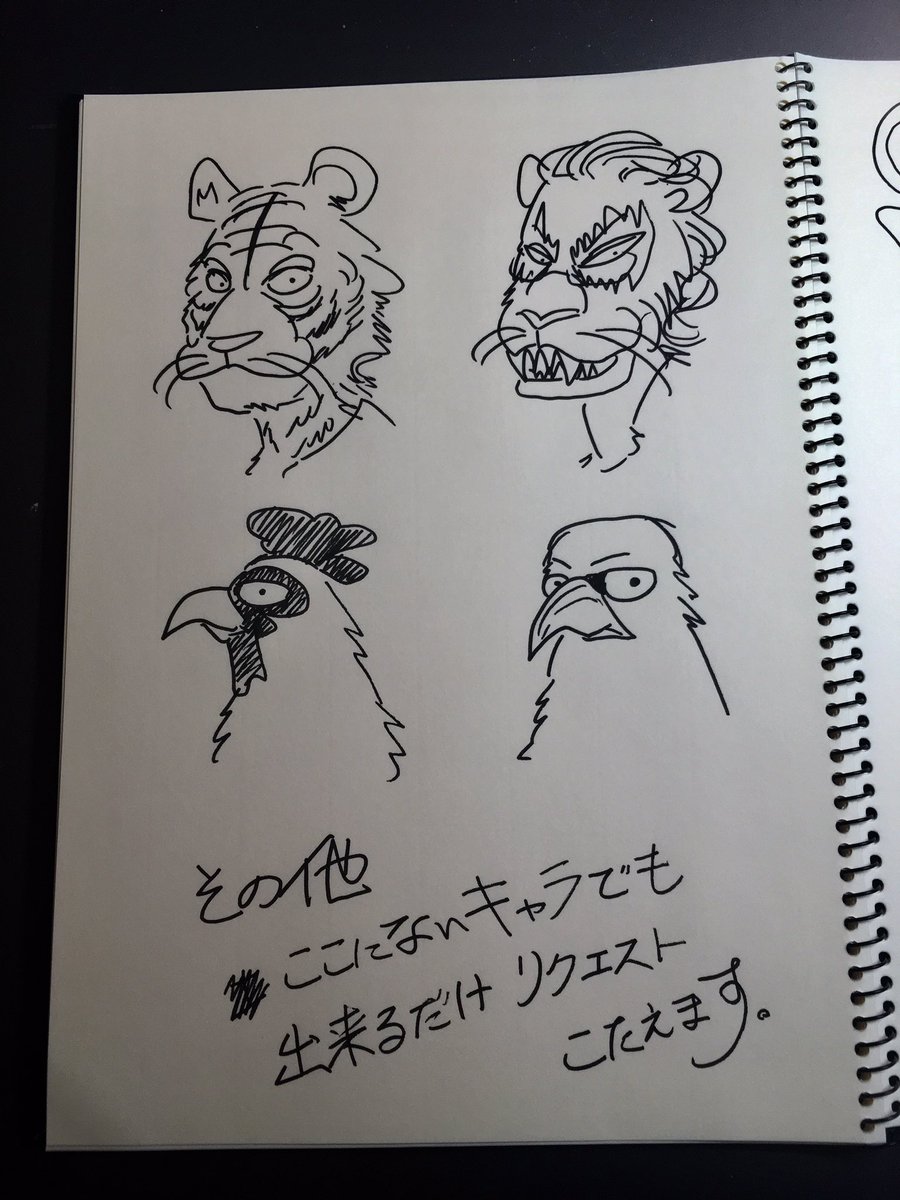 その他
ここにないキャラでも
出来るだけ リクエスト
こたえます。